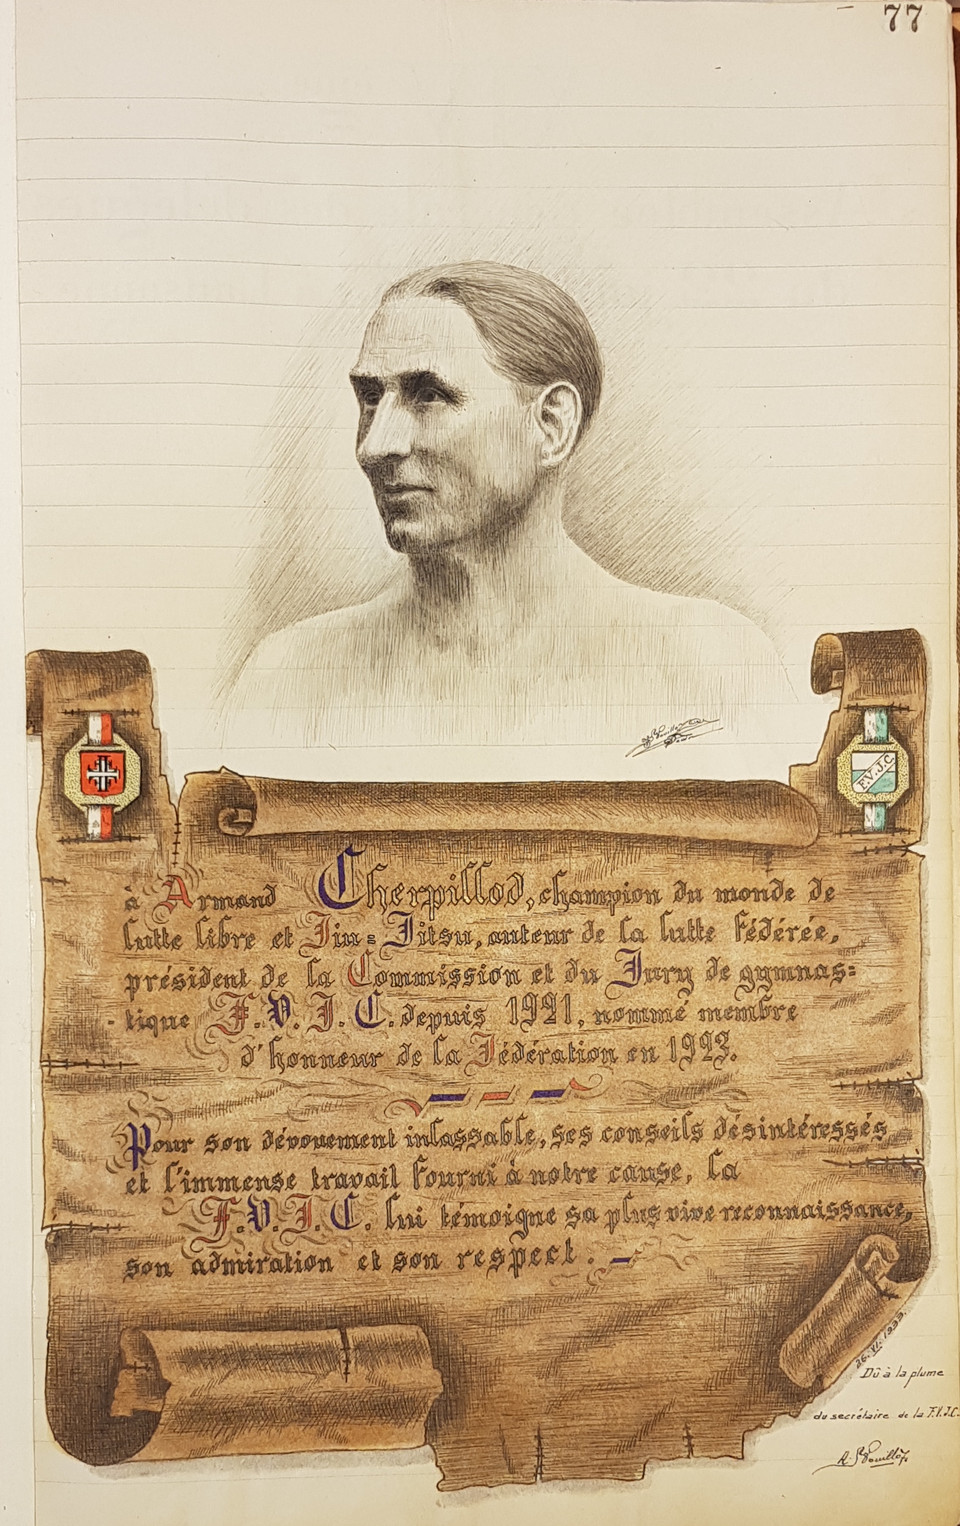 77
F.V.J.C.
à Armand Cherpillod, champion du monde de
lutte libre et Jiu=Jitsu, auteur de la lutte fédérée,
président de la Commission et du Jury de gymnas=
tique F.V.J.C. depuis 1921, nommé membre
d'honneur de la Fédération en 1923.
Pour son dévouement inlassable, ses conseils désintéressés
et l'immense travail fourni à notre cause, la
F.V.J.C. lui témoigne sa plus vive reconnaissance,
son admiration et son respect.
26.VI.1933.
Dû à la plume
du secrétaire de la F.V.J.C.